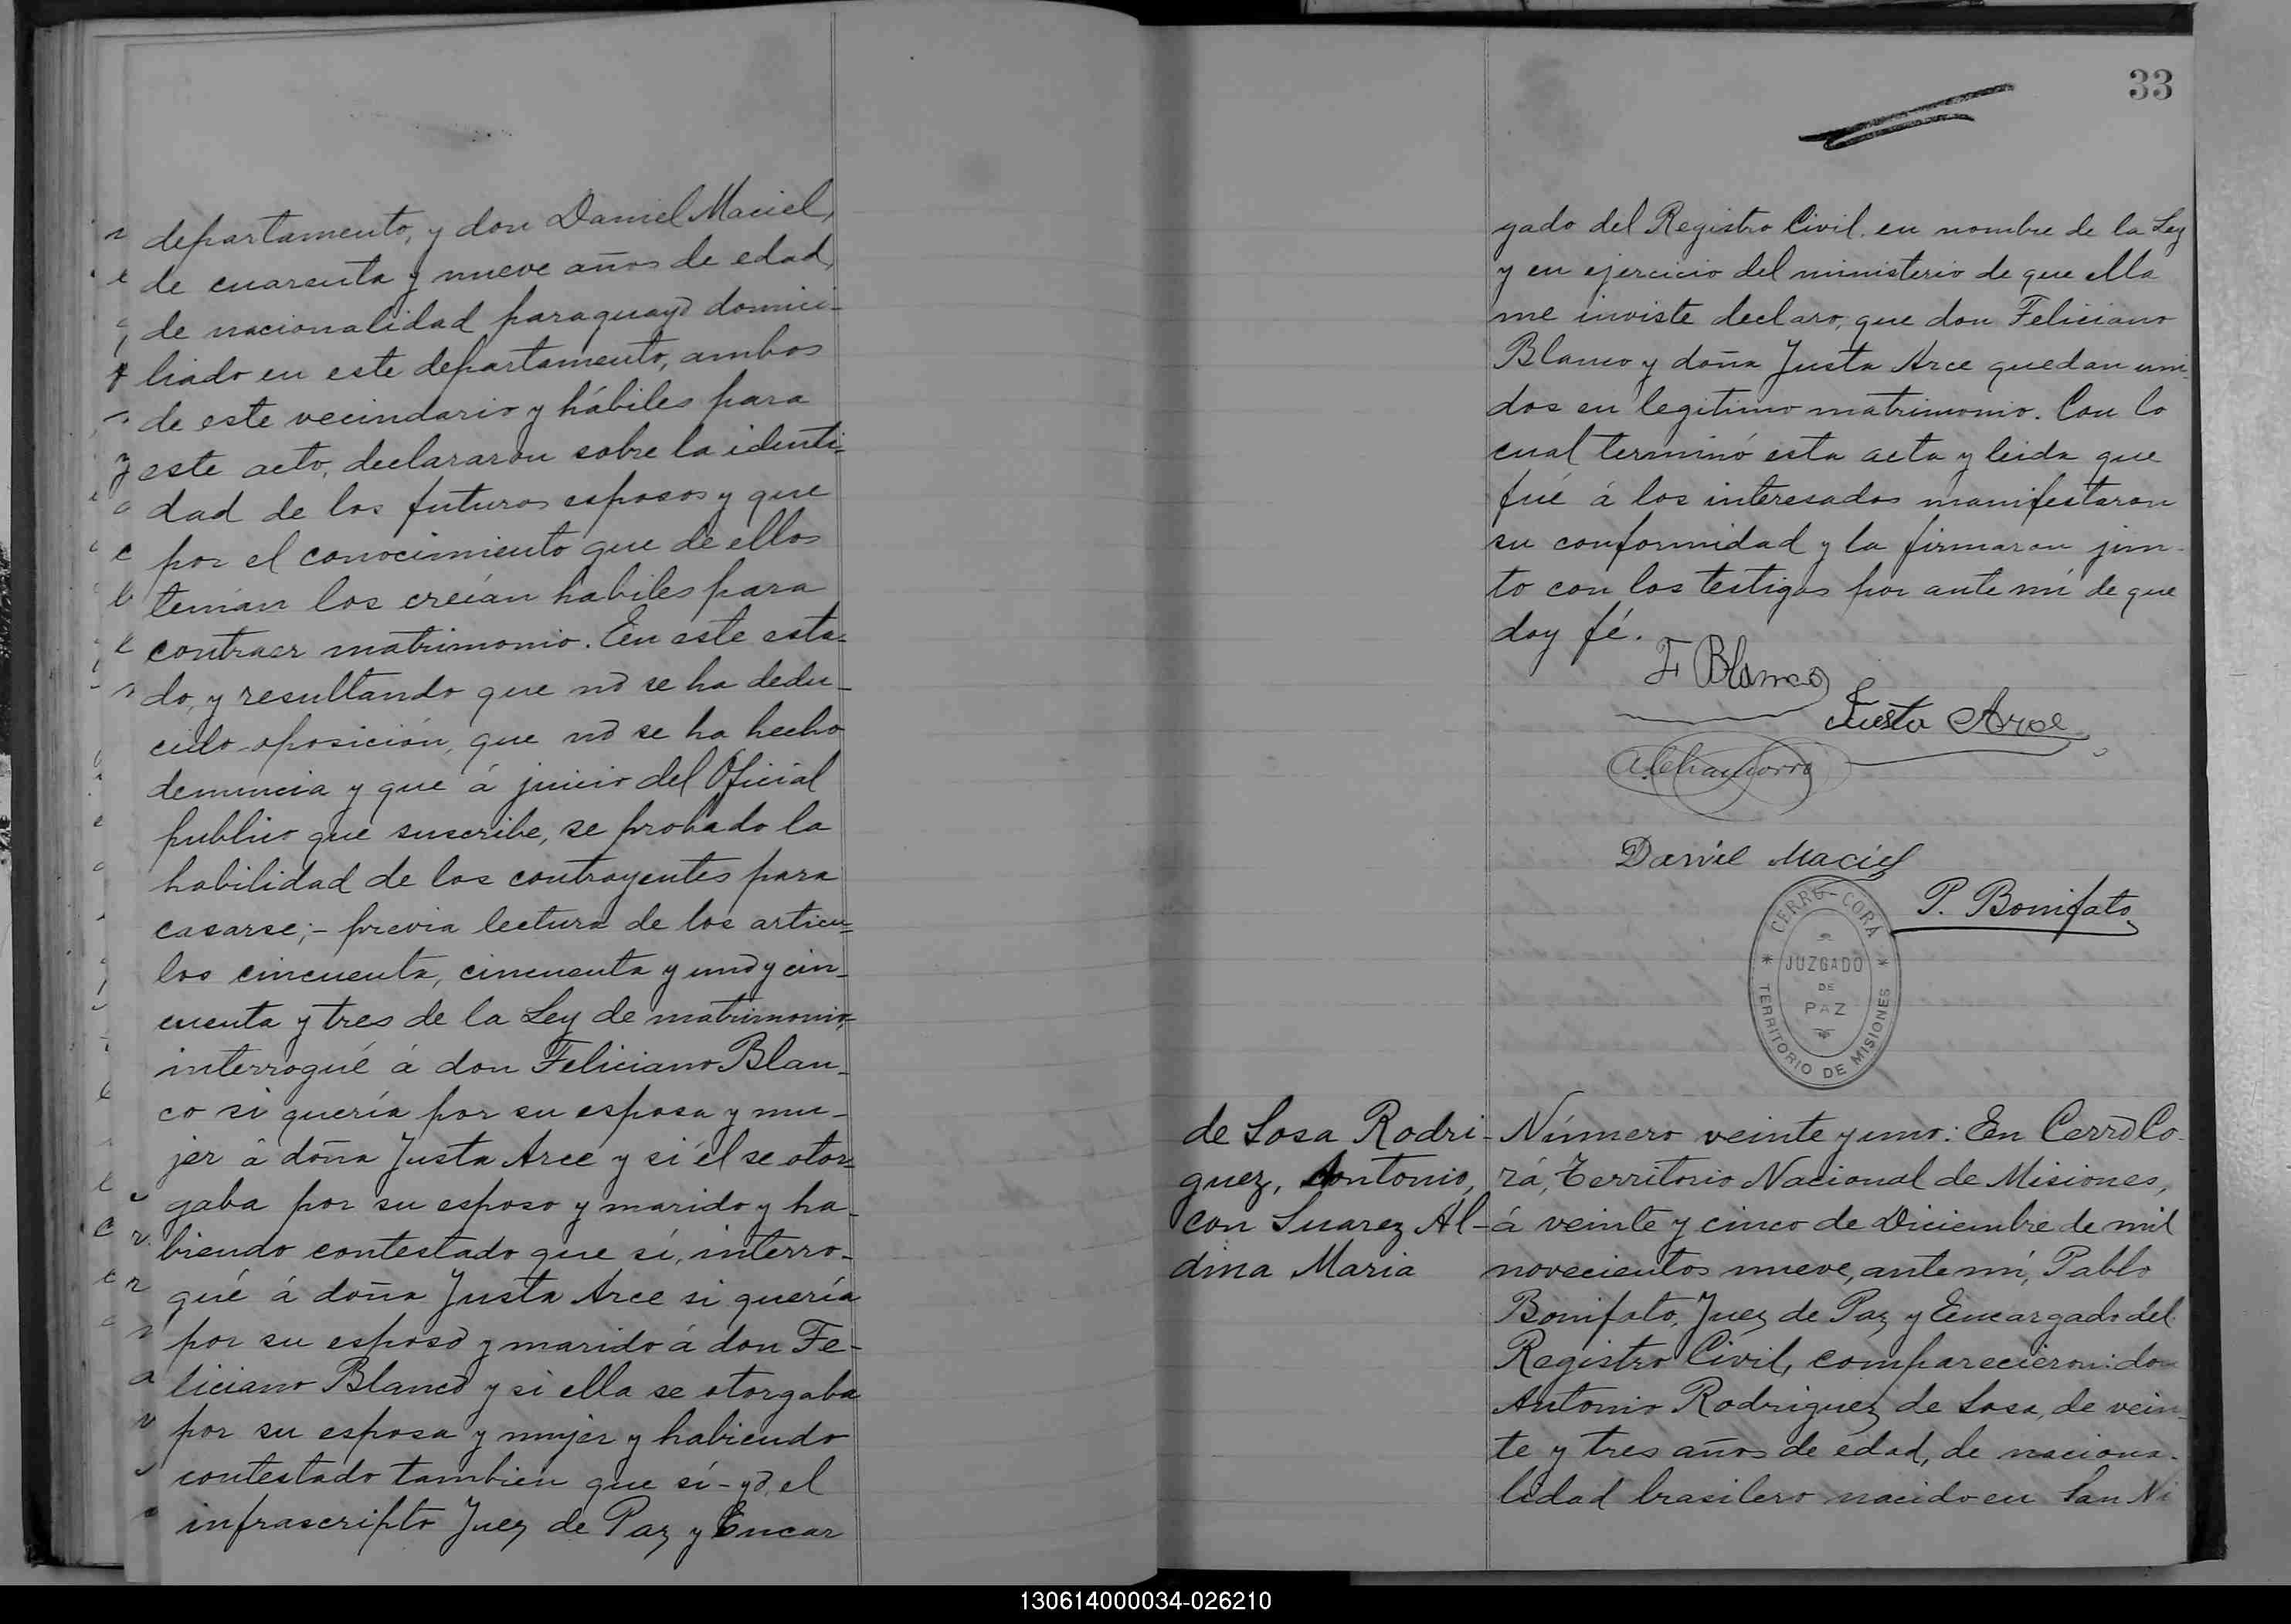 departamento, y don Daniel Maciel,
de cuarenta y nueve años de edad,
de nacionalidad paraguayo domici-
liado en este departamento, ambos
de este vecindario y hábiles para
este acto, declararon sobre la identi-
dad de los futuros esposos y que
por el conocimiento que de ellos
tenían los creían habiles para
contraer matrimonio. En este esta-
do, y resultando que no se ha dedu-
cido oposición, que no se ha hecho
denuncia y que á juicio del Oficial
publico que suscribe, se probado la
habilidad de los contrayentes para
casarse;- previa lectura de los artícu-
los cincuenta, cincuenta y uno y cin-
cuenta y tres de la Ley de matrimonio,
interrogué á don Feliciano Blan-
co si quería por su esposa y mu-
jer á doña Justa Arce y si él se otor-
gaba por su esposo y marido y ha-
biendo contestado que sí, interro-
gué á doña Justa Arce si quería
por su esposo y marido á don Fe-
liciano Blanco y si ella se otorgaba
por su esposa y mujer y habiendo
contestado tambien que sí - yo, el
infrascripto Juez de Paz y Encar
33
gado del Registro Civil, en nombre de la Ley
y en ejercicio del ministerio de que ella
me inviste declaro, que don Feliciano
Blanco y doña Justa Arce quedan uni-
dos en legitimo matrimonio. Con lo
cual terminó esta acta y leida que
fué á los interesados manifestaron
su conformidad y la firmaron jun-
to con los testigos por ante mí de que
doy fé.
F Blanco
Justa Arce
A. Chamorro
Daniel Maciel
P. Bonifato
CERRO-CORÁ
JUZGADO
DE
PAZ
TERRITORIO DE MISIONES
de Sosa Rodri-
guez, Antonio,
con Suarez Al-
dina Maria
Número veinte y uno: En Cerro Co-
rá, Territorio Nacional de Misiones,
á veinte y cinco de Diciembre de mil
novecientos nueve, ante mí, Pablo
Bonifato, Juez de Paz y Encargado del
Registro Civil, comparecieron: don
Antonio Rodriguez de Sosa, de vein-
te y tres años de edad, de naciona-
lidad brasilero nacido en San Ni
130614000034-026210